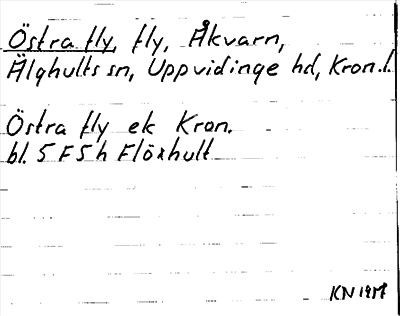 Östra fly, fly, Åkvarn,
Älghults sn, Uppvidinge hd, Kron. l.
Östra fly ek Kron.
bl. 5 F 5 h Flöxhult